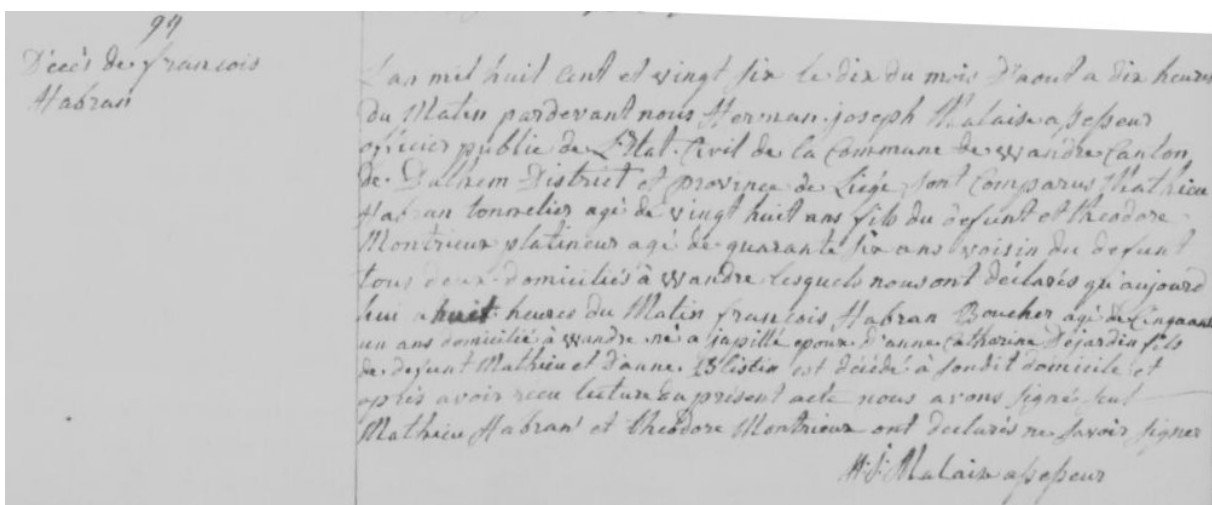 99
Décès de françois
Habran
L'an mil huit cent et vingt six le dix du mois D'aout a dix heures
du Matin pardevant nous Herman joseph Malaise assesseur
officier public de L'Etat Civil de la Commune de wandre Canton
de Dalhem District et province de Liége sont Comparus Mathieu
Habran tonnelier agé de vingt huit ans fils du defunt et theodore
Montrieux platineur agé de quarante six ans voisin du defunt
tous deux domiciliés à wandre lesquels nous ont déclarés qu'aujourd
hui a huit heures du Matin françois Habran Boucher agé de Cinquante
un ans domicilié à wandre né a jupille epoux d'anne Catherine Dejardin fils
de defunt Mathieu et d'anne Blistin est décédé à sondit domicile et
après avoir recu lecture du présent acte nous avons signé seul
Mathieu Habran et theodore Montrieux ont declarés ne savoir signer
H: J: Malaise assesseur